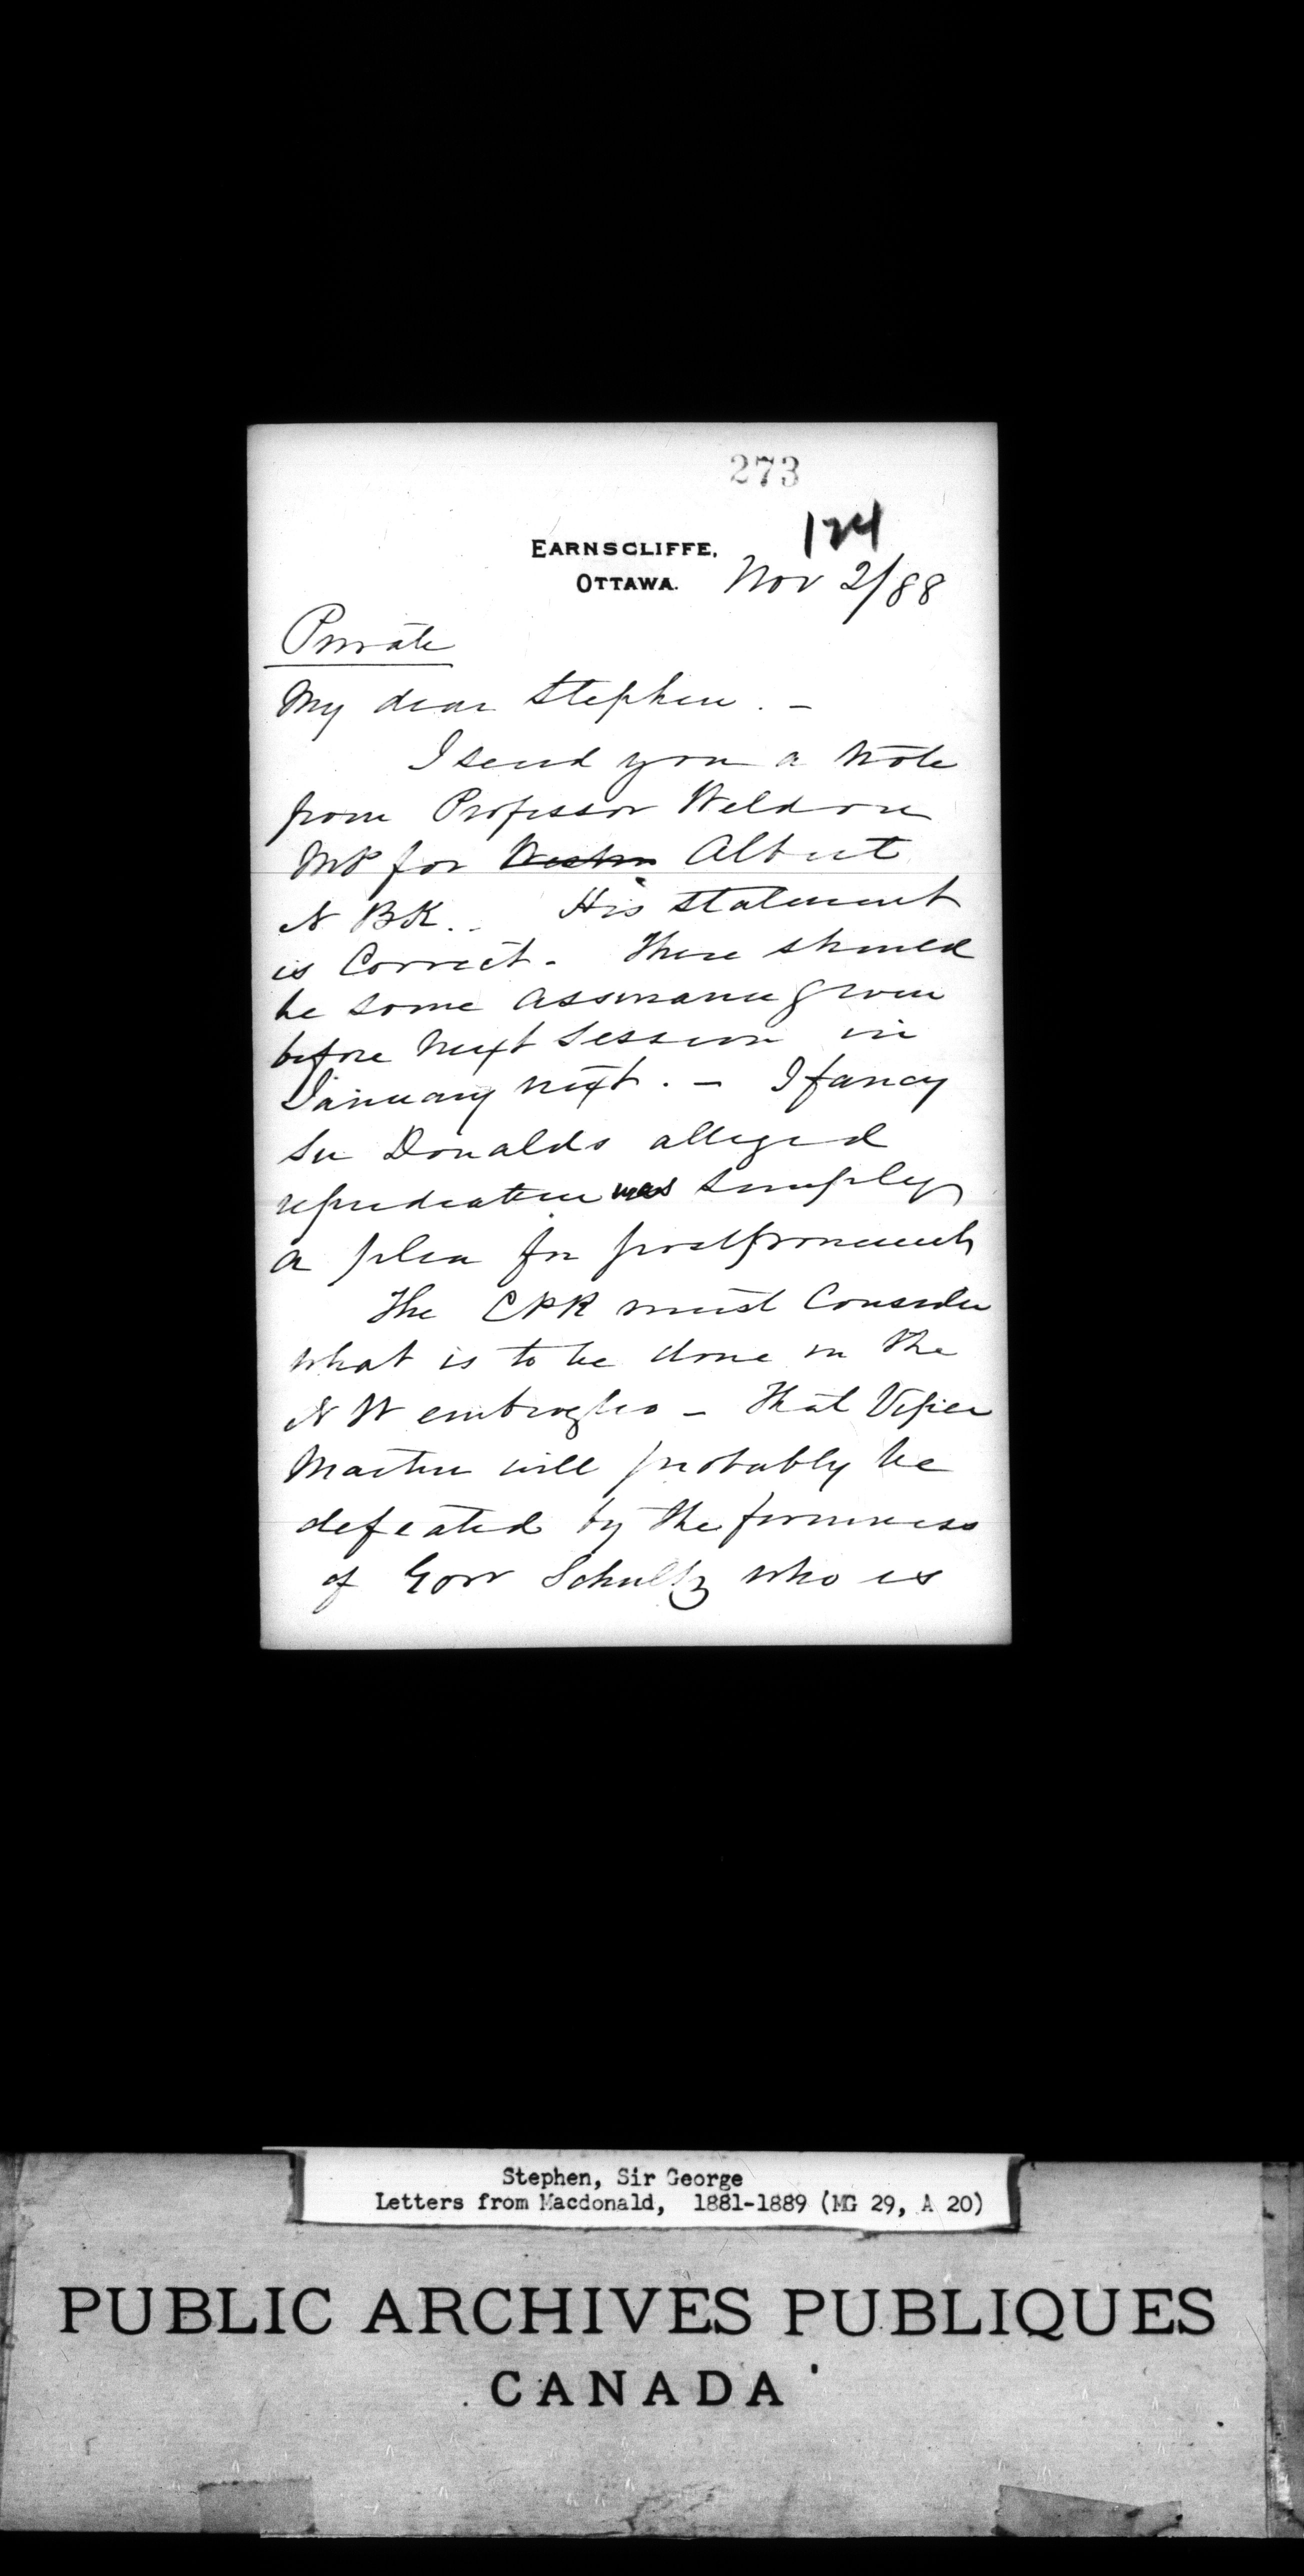 273
124
EARNSCLIFFE,
OTTAWA. Nov 2/88
Private
My dear Stephen. -
I send you a note
from Professor Weldon
MP for Albert
N BK.. His statement
is Correct. There should
be some assurance given
before next Session in
January next. - I fancy
Sir Donalds alleged
repudiation was simply
a plea for postponement
The CPR must Consider
what is to be done in the
N W embroglio - That Viper
Martin will probably be
defeated by the firmness
of Govr Schultz who is
Stephen, Sir George
Letters from Macdonald, 1881-1889 (MG 29, A 20)
PUBLIC ARCHIVES PUBLIQUES
CANADA